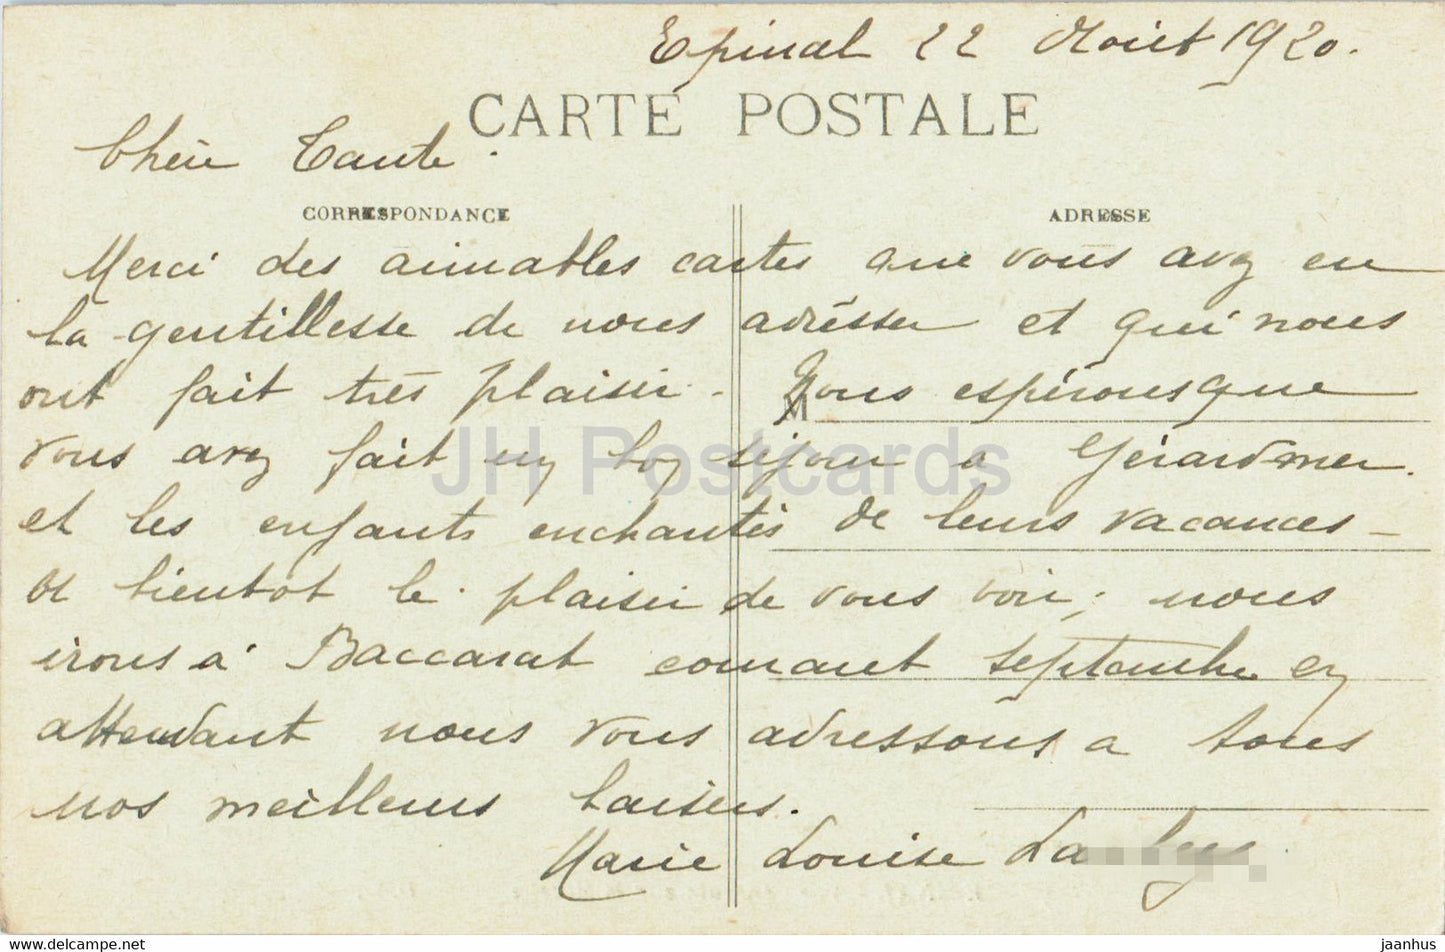 Epinal 22 Août 1920.
CARTE POSTALE
Chère Tante.
CORRESPONDANCE
ADRESSE
Merci des aimables cartes que vous avez en
la gentillesse de nous adresser et qui nous
ont fait très plaisir. Nous espérons que
vous avez fait un bon séjour à Gérardmer.
et les enfants enchantés de leurs vacances -
A bientot le plaisir de vous voir; nous
irons à Baccarat courant septembre en
attendant nous vous adressons a tous
nos meilleurs baisers.
Marie Louise La
JH Postcards
www.delcampe.net
jaanhus